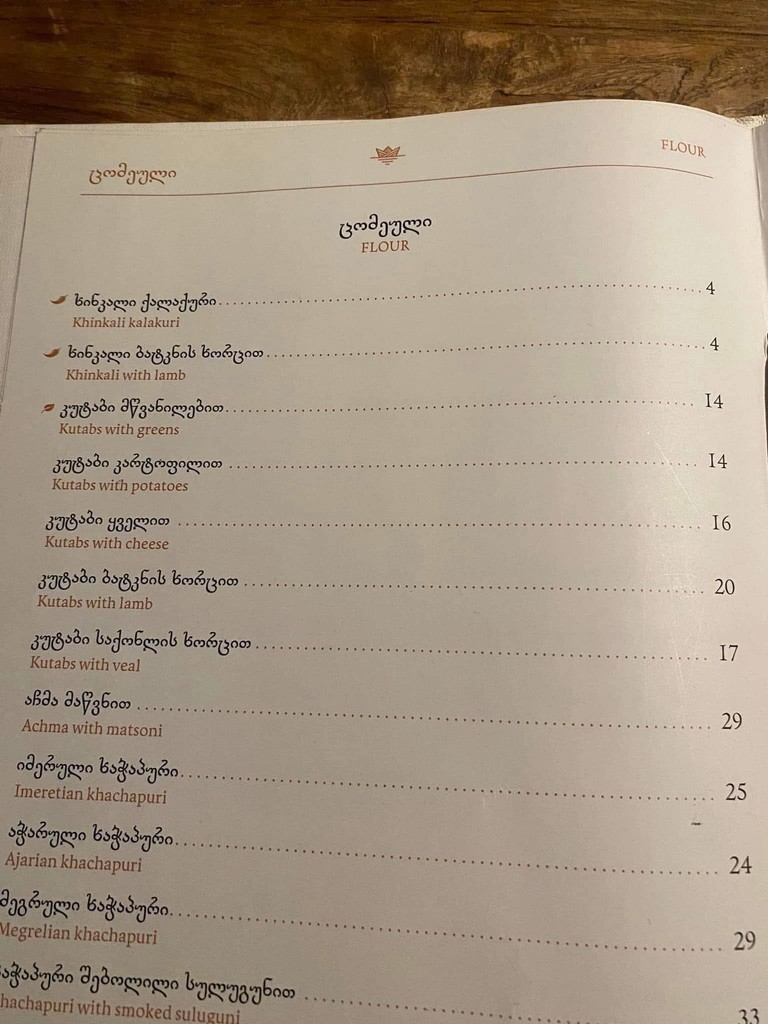 ცომეული
FLOUR
ცომეული
FLOUR
ხინკალი ქალაქური 4
Khinkali kalakuri
ხინკალი ბატკნის ხორცით 4
Khinkali with lamb
კუტაბი მწვანილებით 14
Kutabs with greens
კუტაბი კარტოფილით 14
Kutabs with potatoes
კუტაბი ყველით 16
Kutabs with cheese
კუტაბი ბატკნის ხორცით 20
Kutabs with lamb
კუტაბი საქონლის ხორცით 17
Kutabs with veal
აჩმა მაწვნით 29
Achma with matsoni
იმერული ხაჭაპური 25
Imeretian khachapuri
აჭარული ხაჭაპური 24
Ajarian khachapuri
მეგრული ხაჭაპური 29
Megrelian khachapuri
აჭაპური შებოლილი სულუგუნით 33
hachapuri with smoked suluguni